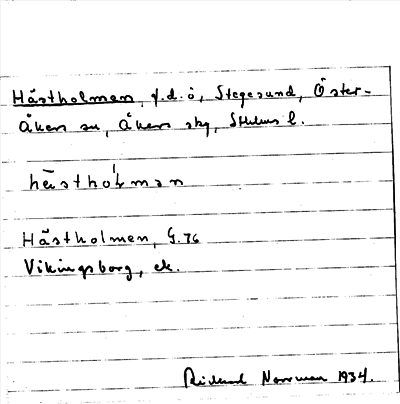 Hästholmen, f.d. ö, Stegesund, Öster-
Åkers sn, Åkers skg, Sthlms l.
hästholmen
Hästholmen, G.76
Vikingsborg, ek.
Rickard Norrman 1934.